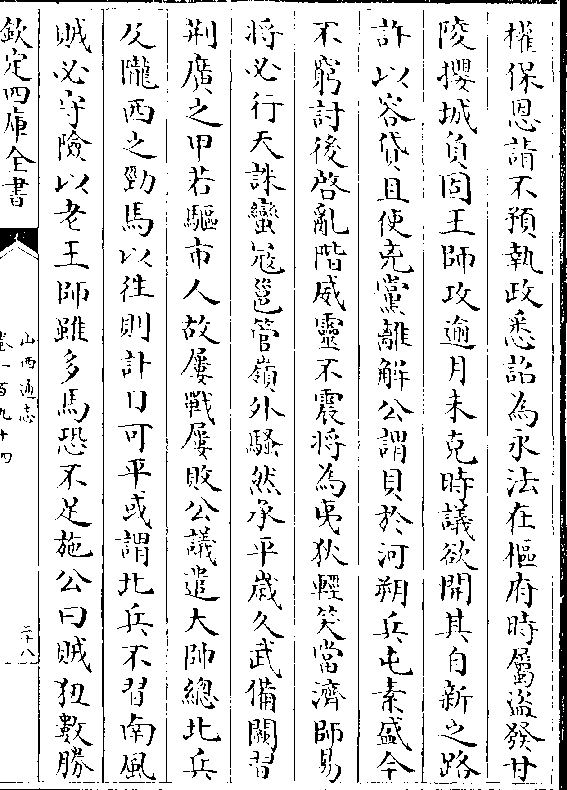 權保恩請不預執政悉詔為永法在樞府時屬盜發甘
陵攖城負固王師攻逾月未克時議欲開其自新之路
許以容貸且使兇黨離解公謂貝於河朔兵屯素盛今
不窮討後啓亂階威靈不震將為夷狄輕笑當濟師易
將必行天誅蠻冦邕管嶺外騷然承平歲久武備闕習
荆廣之甲若驅市人故屢戰屢敗公議遣大帥總北兵
及隴西之勁馬以往則計日可平或謂北兵不習南風
賊必守險以老王師雖多馬恐不足施公曰賊狃數勝
欽定四庫全書
山西通志
卷一百九十四
二十八